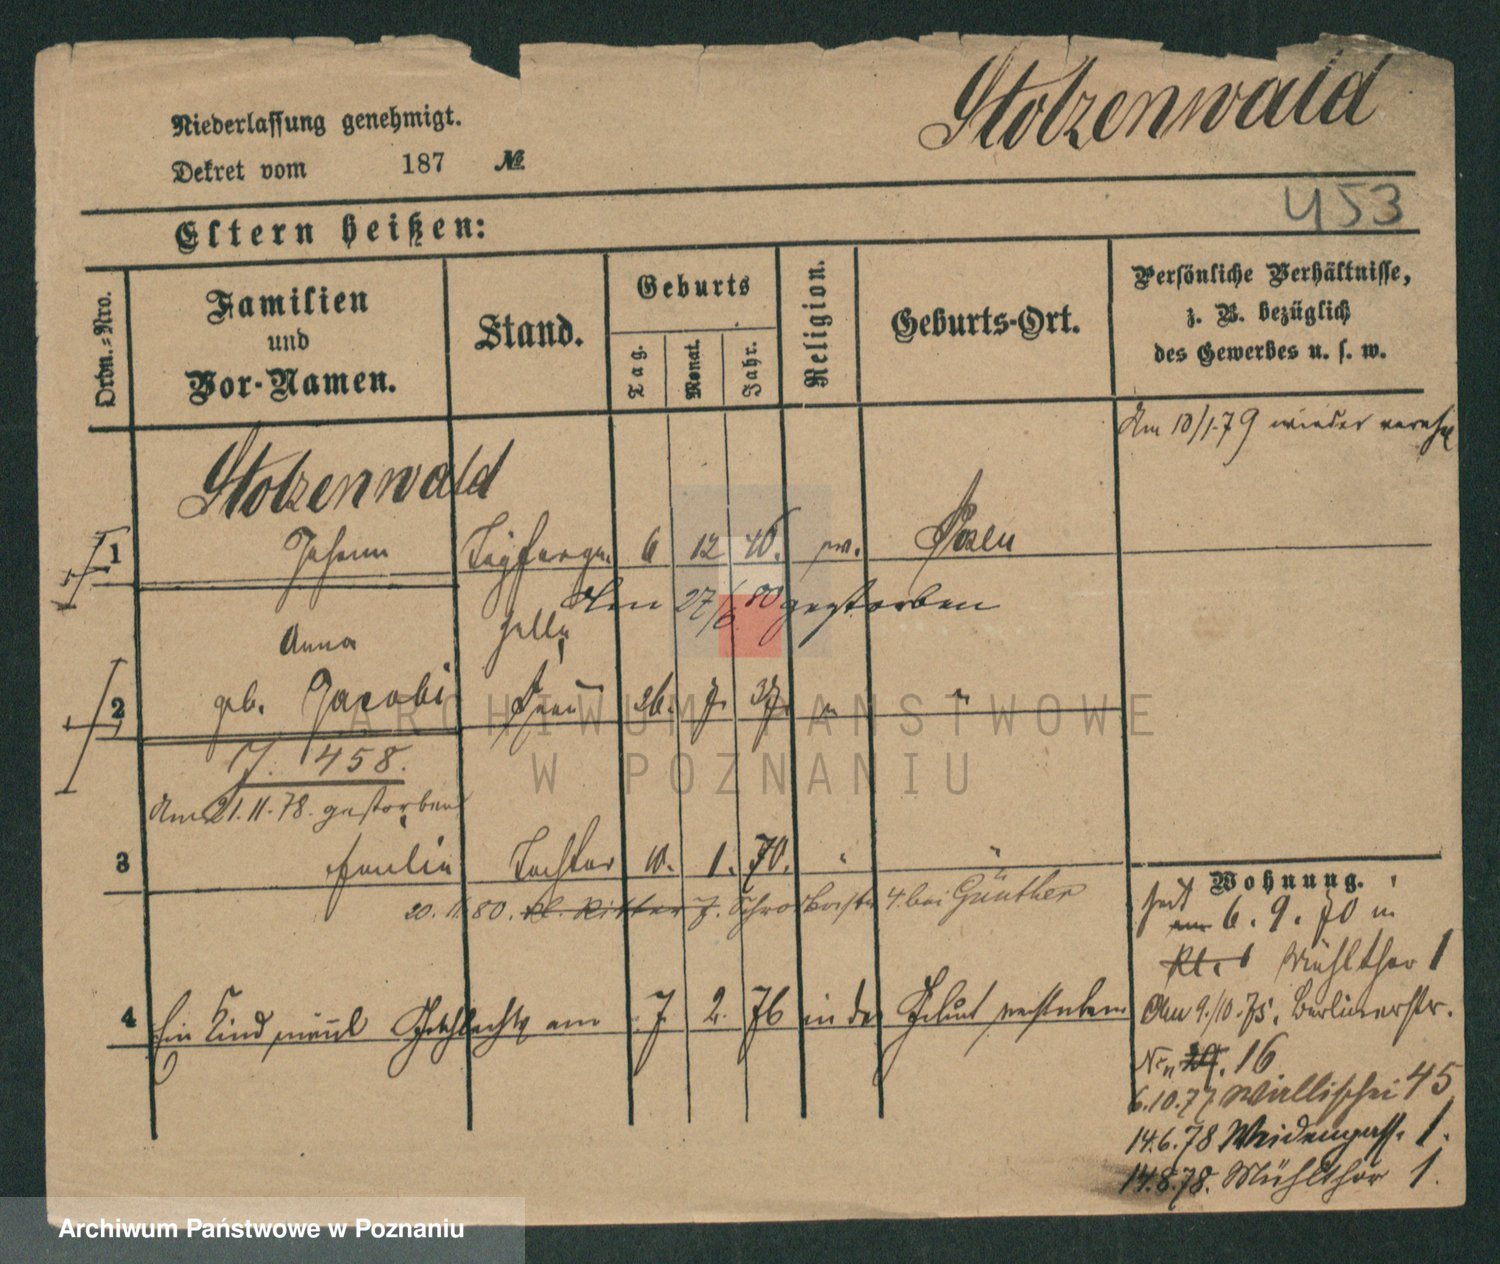 Stolzenwald
Niederlassung genehmigt.
Dekret vom 187 №
453
Eltern heißen:
Ordn.-Nro.
Familien
und
Vor-Namen.
Stand.
Geburts
Tag.
Monat.
Jahr.
Religion.
Geburts-Ort.
Persönliche Verhältnisse,
z. B. bezüglich
des Gewerbes u. s. w.
Am 10/1.79 wieder
Stolzenwald
1 Johann 6 12 46. Posen
Den 27/6 80 gestorben
Anna
2 geb. Jacobi Frau 26. 7. 37. " "
J. 458.
Am 21.11.78. gestorben
3 Tochter 10. 1. 70. " "
20. 11. 80. kl. Ritter 7. 4. bei Günther
4 Ein Kind männl Geschlechts am 7. 2. 76 in der Geburt verstorben
Wohnung.
seit
am 6. 9. 70 in
Kl. Mühlthor 1
Am 9./10.75. Berlinerstr.
Nr. 16
6.10.77 Wallischei 45
14.6.78 Weidengass. 1.
14.8.78. Mühlthor 1.
ARCHIWUM PAŃSTWOWE
W POZNANIU
Archiwum Państwowe w Poznaniu